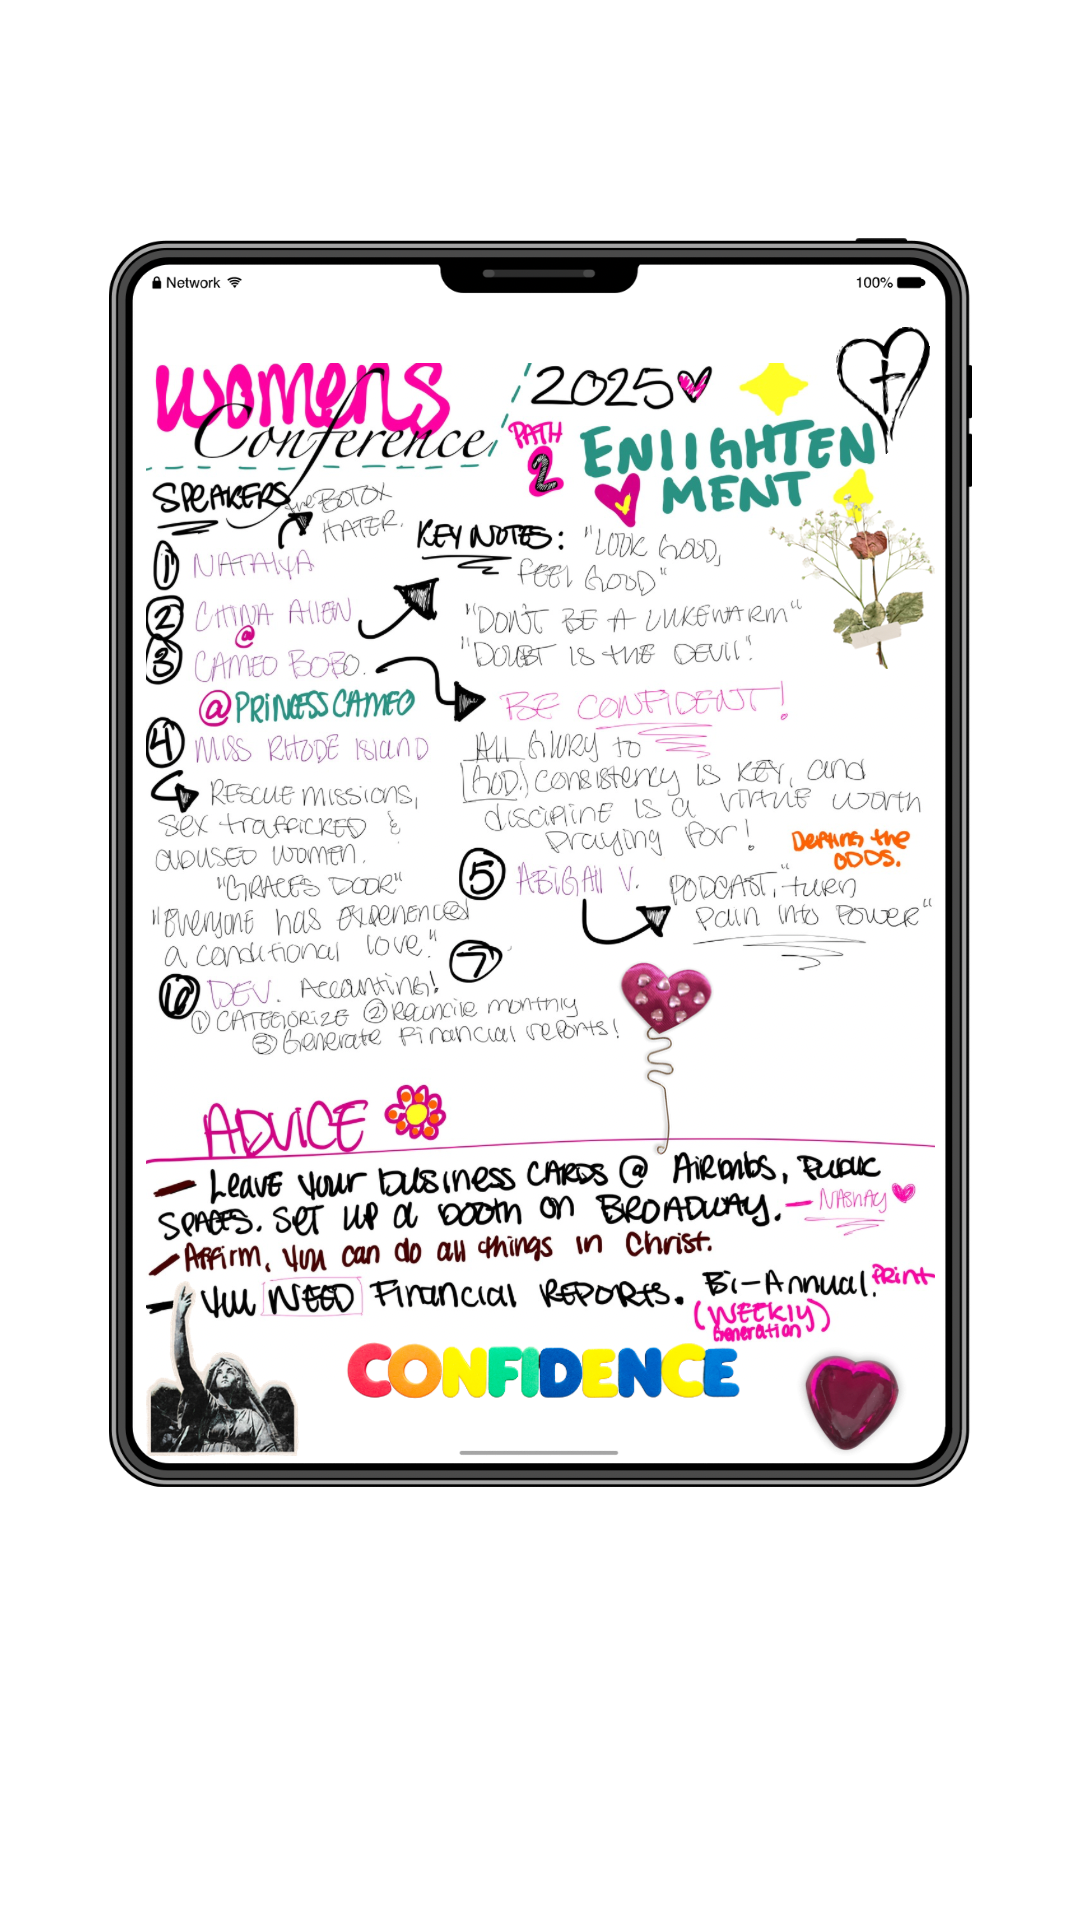 Network
100%
Womens
Conference
2025
PATH
2
ENlIGHTEN
MENT
SPEAKERS
the BOTOX
HATER.
① NATALYA
② CHINA AllEN
@
③ CAMEO BOBO.
@PRINCESS CAMEO
④ MISS RHODE ISlAND
RESCUE missions,
sex trafficked &
abused women.
"GRACES DOOR"
"Everyone has experienced
a conditional love."
KEY NOTES: "LOOK GOOD,
FEEl GOOD"
"DON'T BE A LUKEWARM"
"DOUBT IS the DEVIl".
BE CONFIDENT!
All GlORY to
GOD. consistency IS KEY, and
discipline IS a virtue worth
praying for!
Defying the
ODDS.
⑤ ABIGAIl V.
PODCAST, "turn
pain into Power"
⑦
⑥ DEV. Accounting!
① CATEGORIZE ② Reconcile monthly
③ Generate Financial reports!
ADVICE
- Leave your business CARDS @ Airbnbs, Public
SPACES. SET UP a booth on BROADWAY. - NASHAY
- Affirm, you can do all things in Christ.
- YOU NEED Financial REPORTS. Bi-Annual. Print
(WEEKlY)
Generation
CONFIDENCE